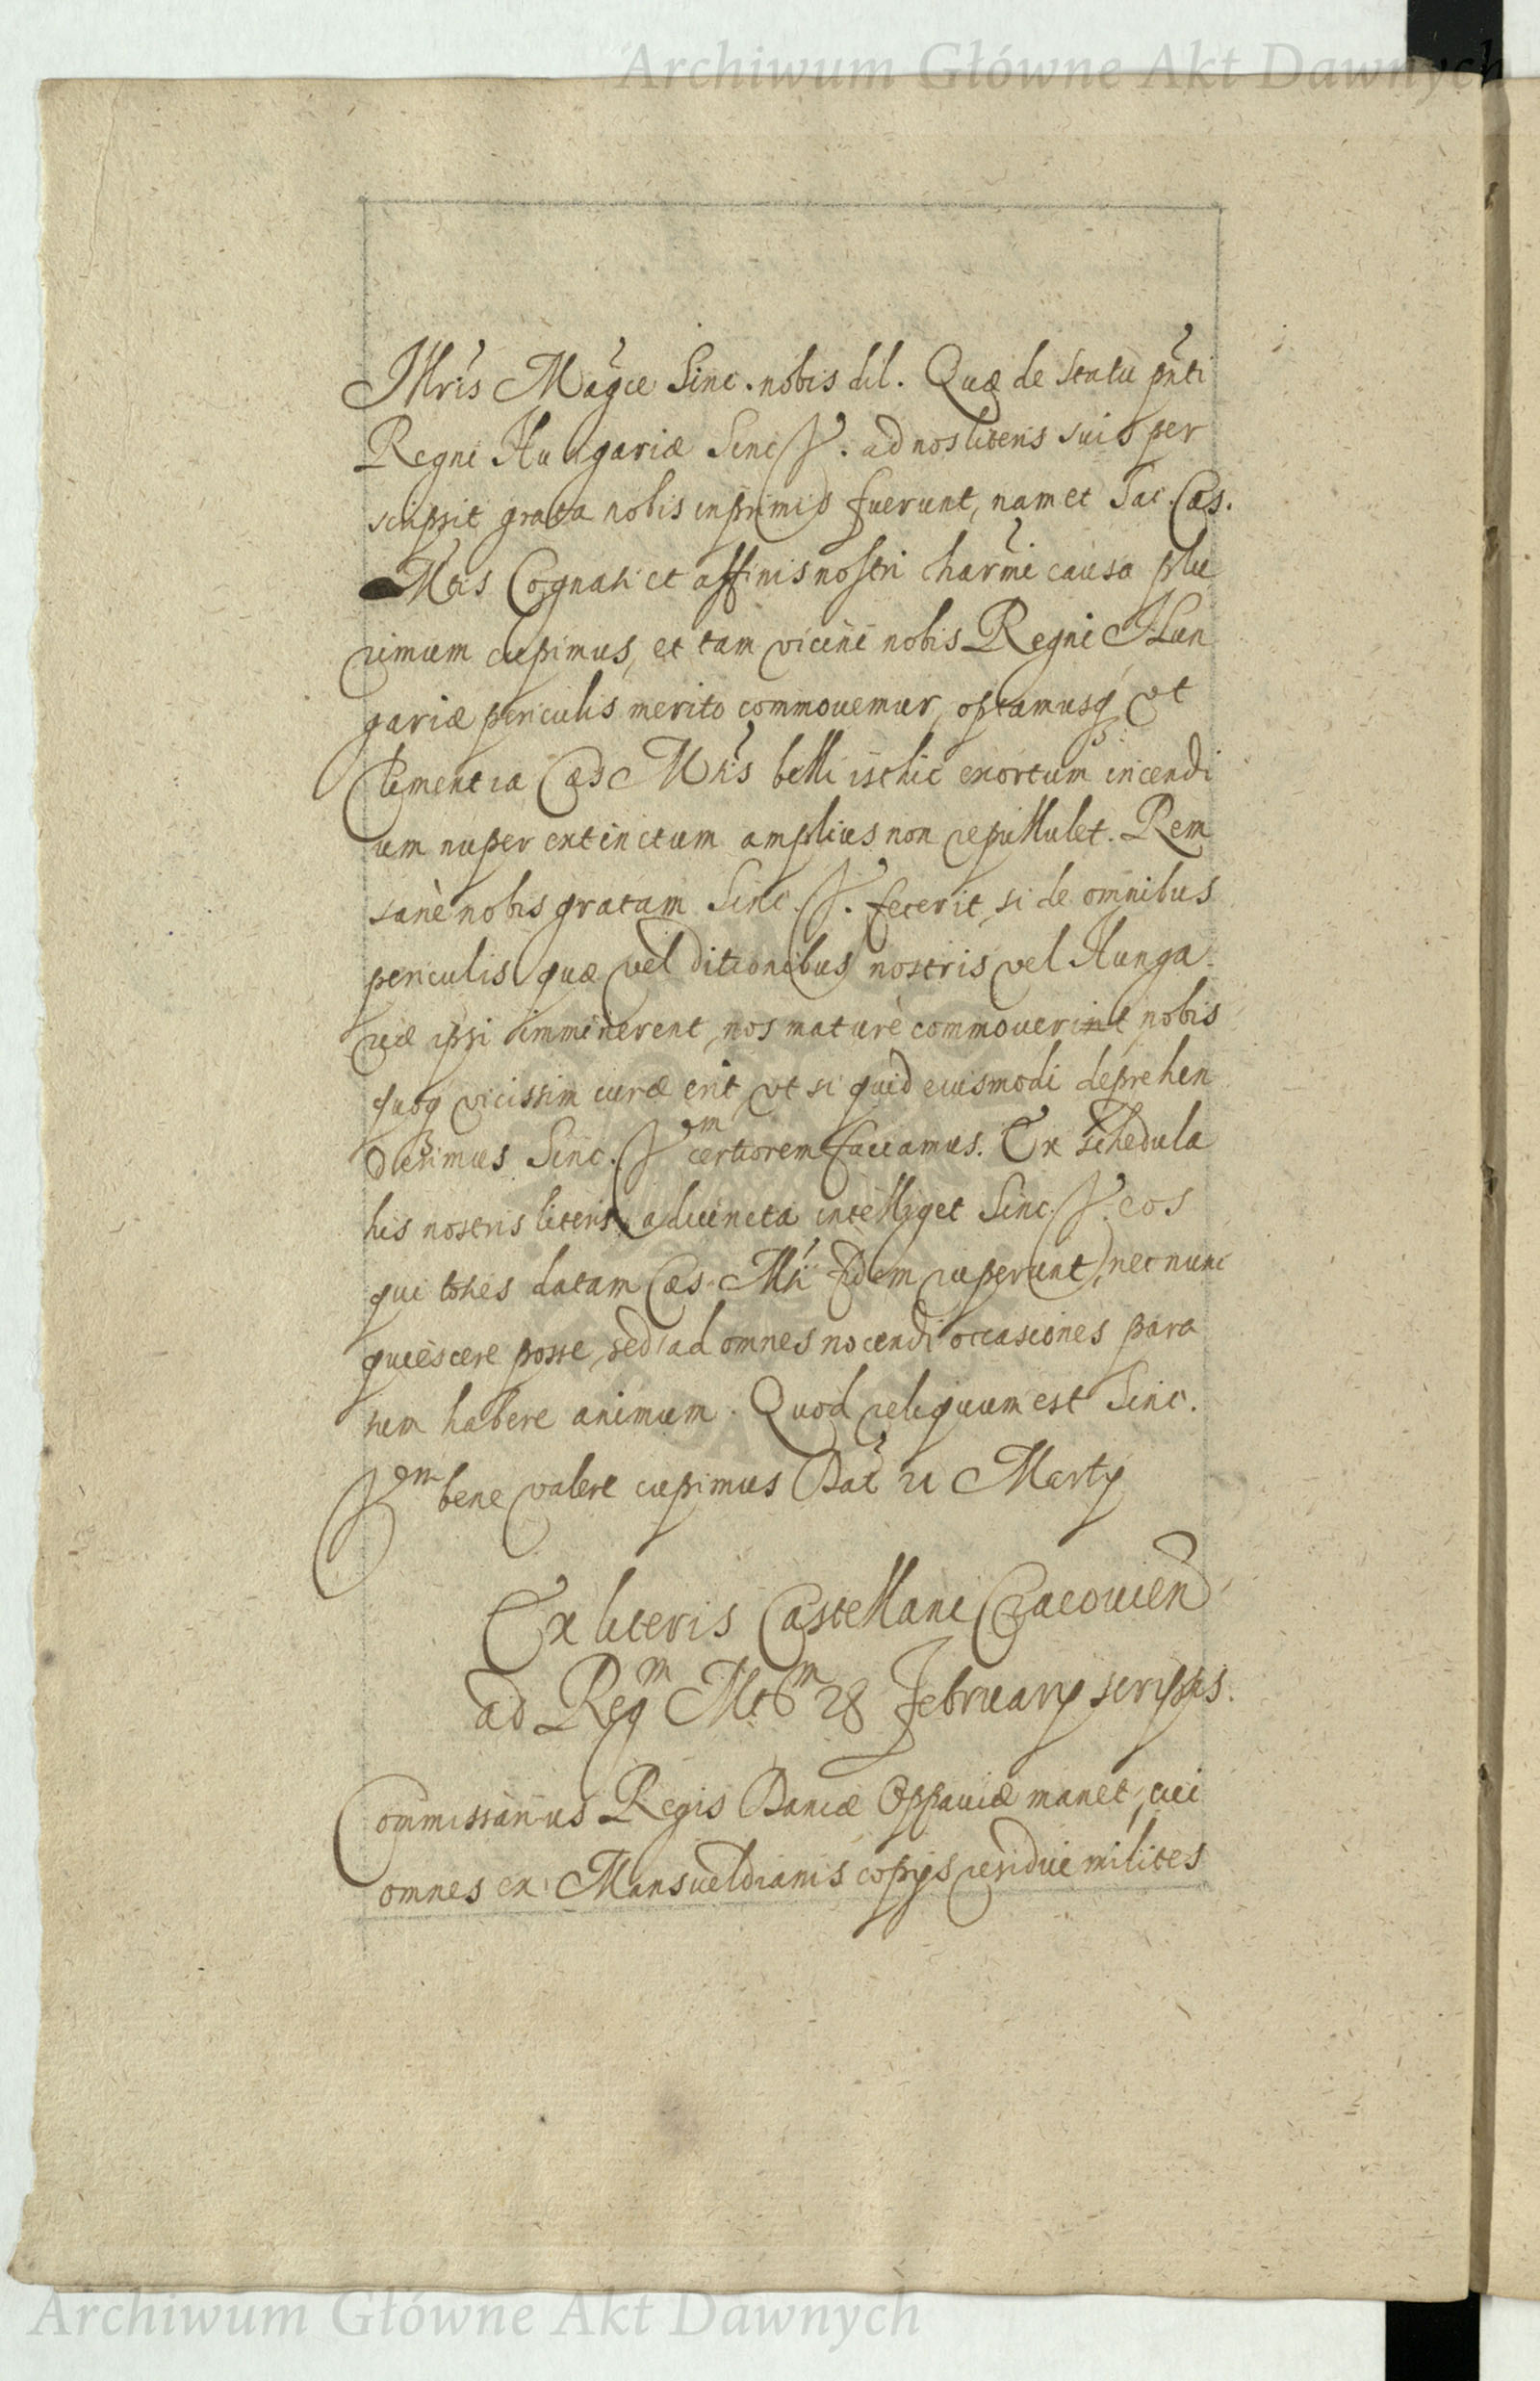 Archiwum Główne Akt Dawnych
Illris Magce Sinc. nobis dil. Quæ de statu pnti
Regni Hungariæ Sinc. V. ad nos literis suis per
scripsit grata nobis inprimis fuerunt, nam et Sac. Cæs.
Mtis Cognati et affinis nostri charmi causa plu
rimum cupimus, et tam vicini nobis Regni Hun
gariæ periculis merito commouemur, optamusq vt
Clementia Cæs Mtis belli isthic exortum incendi
um nuper extinctum amplius non repullulet. Rem
sanè nobis gratam Sinc. V. fecerit, si de omnibus
periculis quæ vel ditionibus nostris vel Hunga
riæ ipsi imminerent, nos maturè commouerint, nobis
quoq vicissim curæ erit, vt si quid eiusmodi deprehen
derimus Sinc. Vem certiorem faciamus. Ex schedula
his nostris literis adiuncta intelliget Sinc. V. eos
qui toties datam Cæs. Mti fidem ruperunt, nec nunc
quiescere posse, sed ad omnes nocendi occasiones para
tum habere animum. Quod reliquum est Sinc.
Vem bene valere cupimus Dat 21 Martij
Ex literis Castellani Cracouien
ad Regm Mtem 28 februarij scriptis.
Commissarius Regis Daniæ Oppauiæ manet, cui
omnes ex Mansueldianis copijs residui milites
Archiwum Główne Akt Dawnych